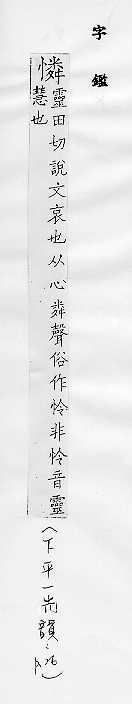 字鑑
憐靈田切說文哀也从心粦聲俗作怜非怜音靈
慧也
(下平一先韻